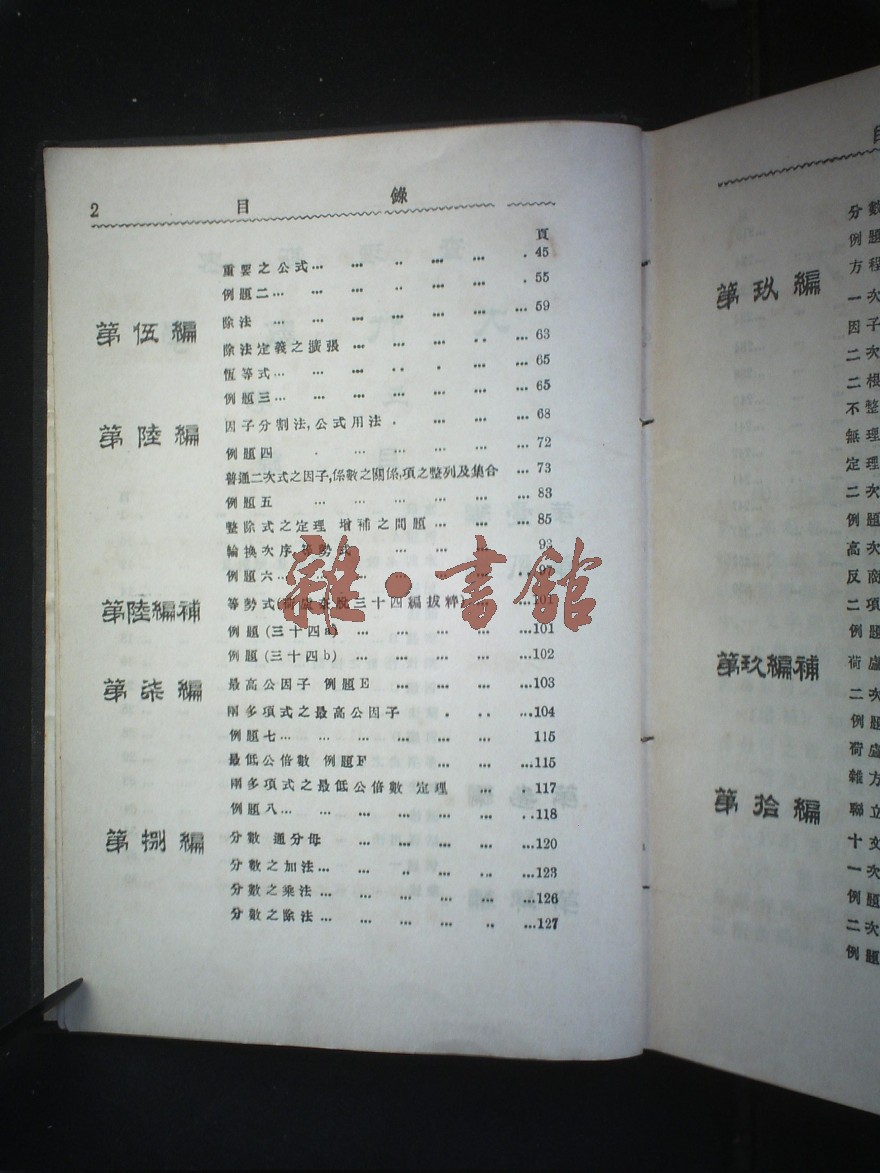 2 目 錄
頁
重要之公式… … ·· … … . 45
例題二… … … … … … . 55
第伍編 除法 … … … … … … 59
除法定義之擴張 … … … … … 63
恆等式… … … ·· . … … 65
例題三… … … … … … … 65
第陸編 因子分割法,公式用法 . … … … 68
例題四 . … … … … … 72
普通二次式之因子,係數之關係,項之整列及集合 … 73
例題五 … … … … … 83
整除式之定理 增補之問題 … … … 85
輪換次序,等勢式 … … … … 93
例題六… … 97
第陸編補 等勢式 三十四編拔粹 … … …101
例題(三十四a) … … … … … …101
例題(三十四b) … … … … … …102
第柒編 最高公因子 例題E … … … …103
兩多項式之最高公因子 . . ·· …104
例題七… … … … … … … 115
最低公倍數 例題F … … … …115
兩多項式之最低公倍數 定理 . … . 117
例題八… … … … … … ·· ..118
第捌編 分數 通分母 … … … … … …120
分數之加法… … … ·· … … …123
分數之乘法… … … … … … …126
分數之除法… … … … … ·· …127
雜·書館
目
分數
例題
方程
第玖編 一次
因子
二次
二根
不整
無理
定理
二次
例題
高次
反商
二項
例題
第玖編補 荷盧
二次
例題
荷盧
雜方
第拾編 聯立
十文
一次
例題
二次
例題